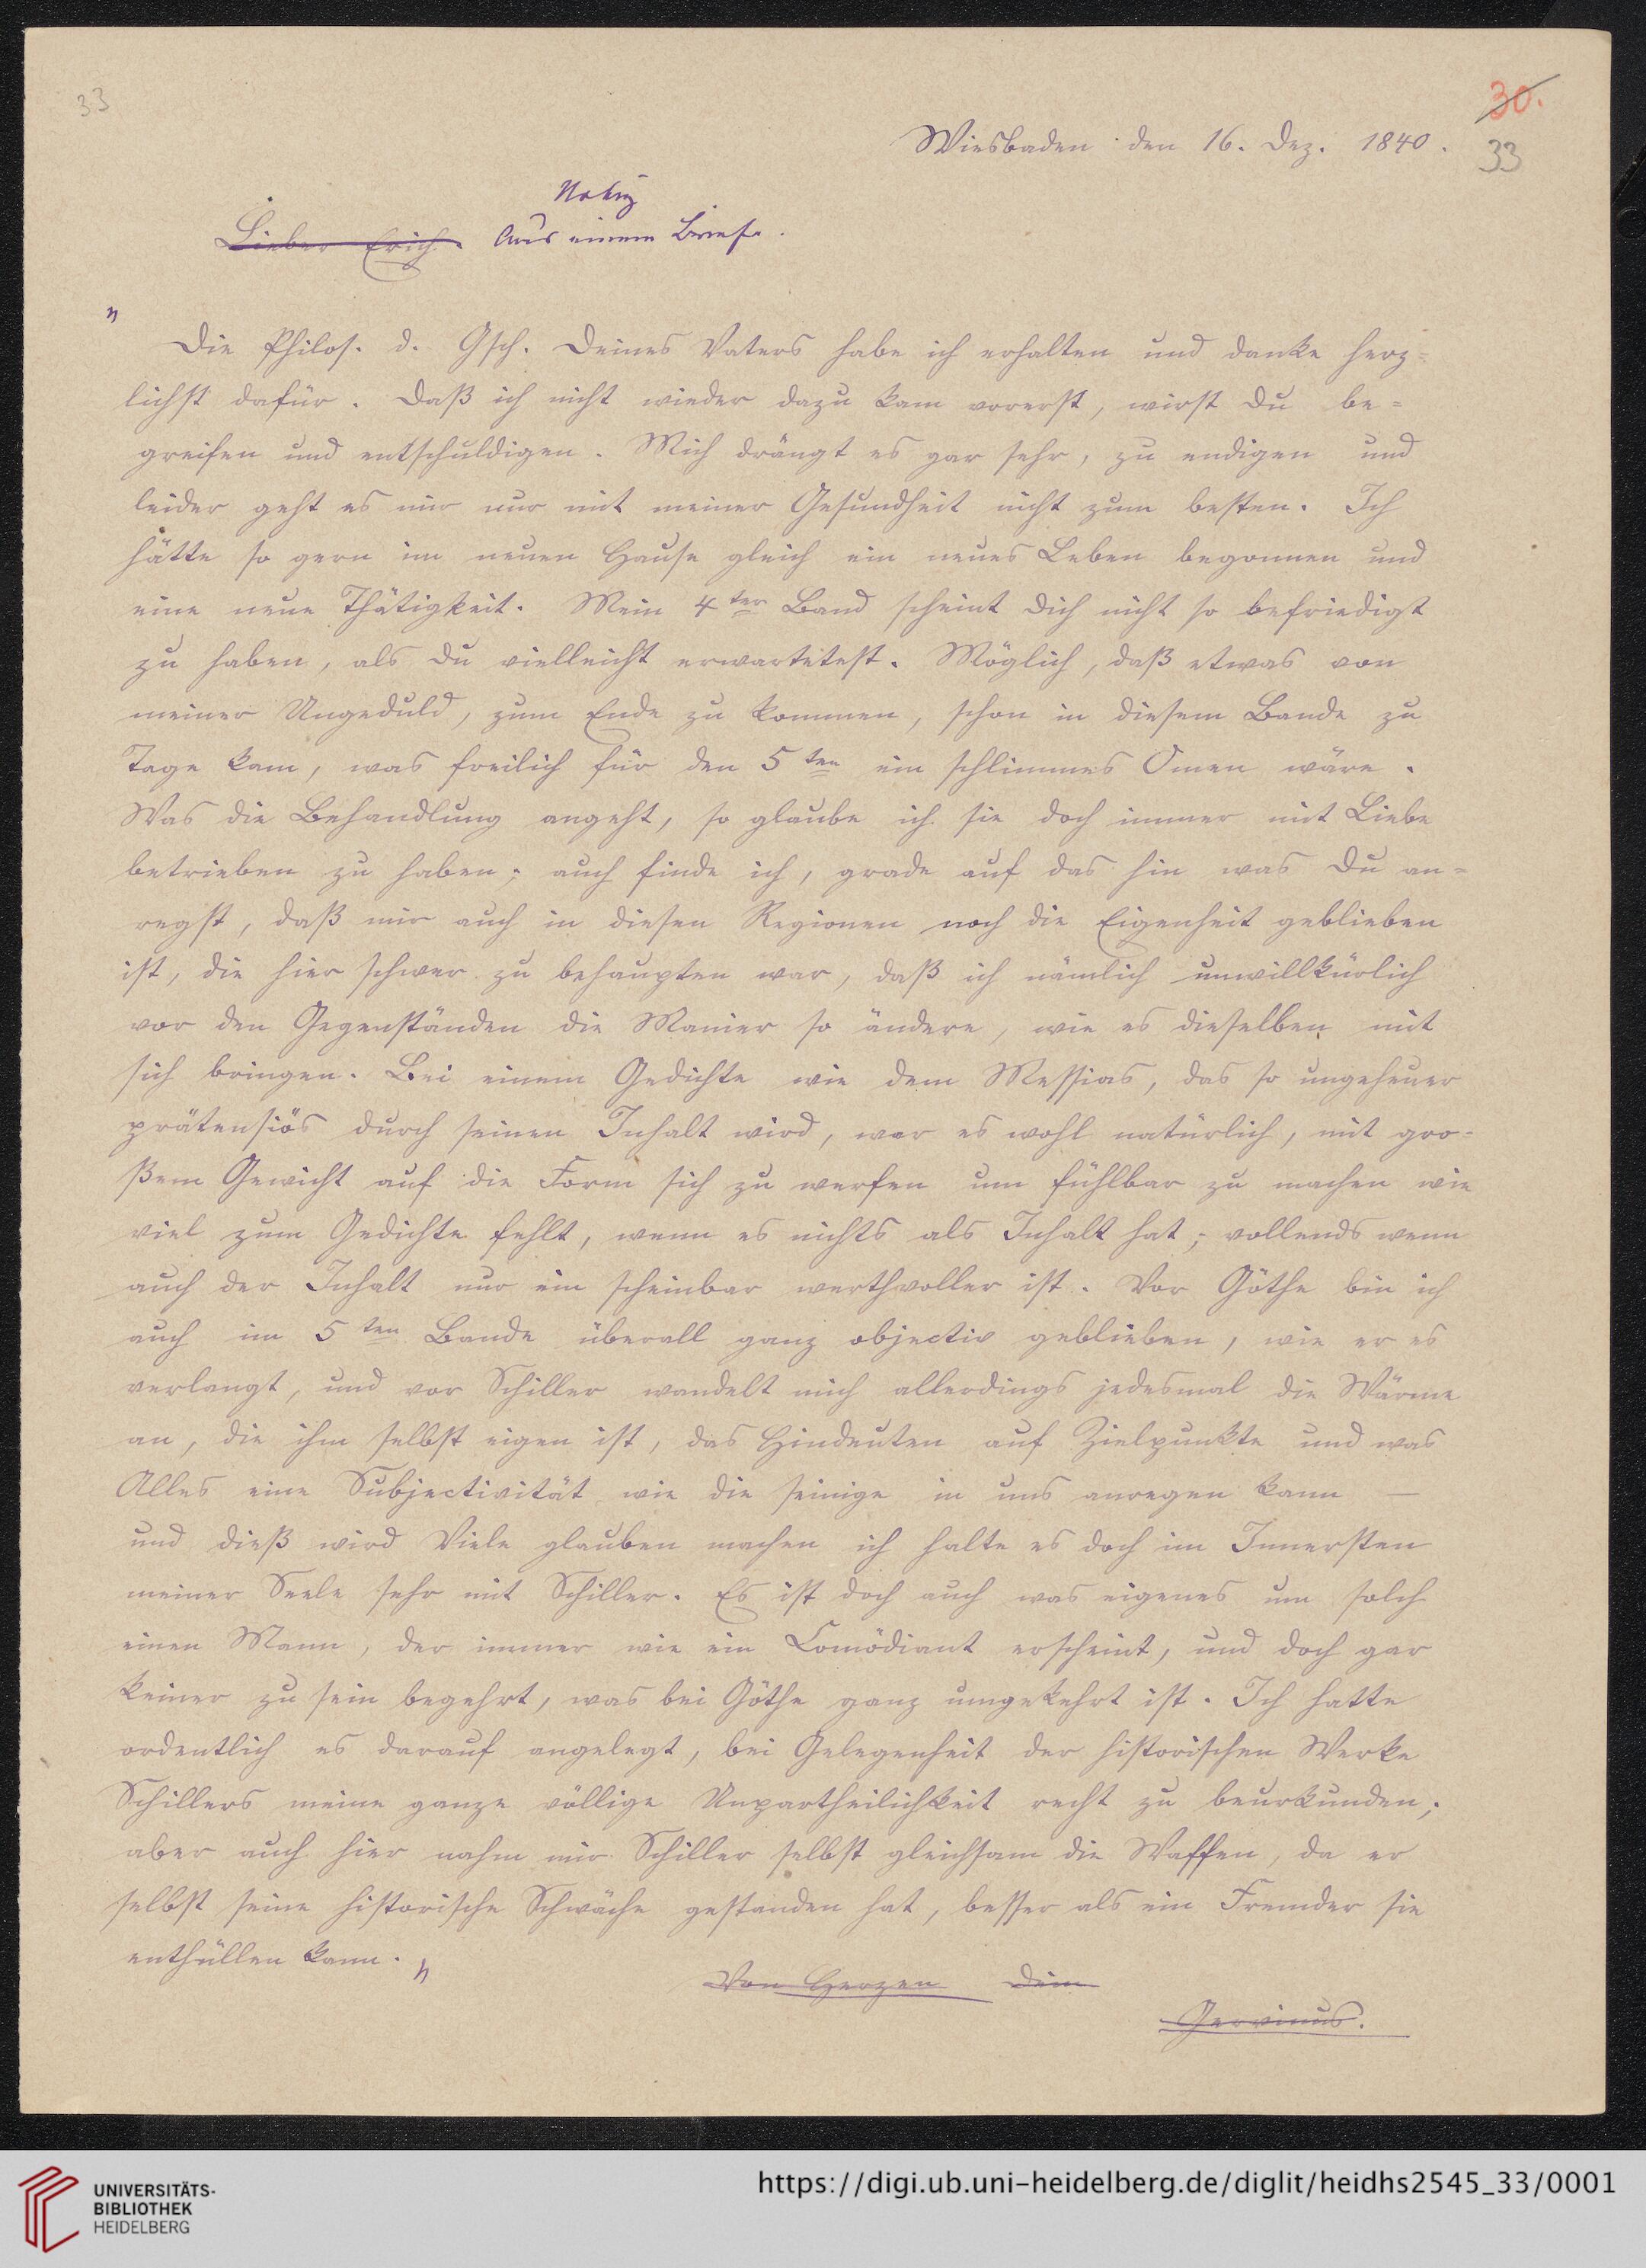 33
30.
Wiesbaden den 16. Dez. 1840.
33
Notiz
Lieber Erich. Aus einem Briefe.
"
Die Philos. d. Gsch. Deines Vaters habe ich erhalten und danke herz=
lichst dafür. Daß ich nicht wieder dazu kam vorerst, wirst Du be=
greifen und entschuldigen. Mich drängt es gar sehr, zu endigen und
leider geht es mir nur mit meiner Gesundheit nicht zum besten. Ich
hätte so gern im neuen Hause gleich ein neues Leben begonnen und
eine neue Thätigkeit. Mein 4ter Band scheint Dich nicht so befriedigt
zu haben, als Du vielleicht erwartetest. Möglich, daß etwas von
meiner Ungeduld, zum Ende zu kommen, schon in diesem Bande zu
Tage kam, was freilich für den 5ten ein schlimmes Omen wäre.
Was die Behandlung angeht, so glaube ich sie doch immer mit Liebe
betrieben zu haben; auch finde ich, grade auf das hin was Du an=
regst, daß mir auch in diesen Regionen noch die Eigenheit geblieben
ist, die hier schwer zu behaupten war, daß ich nämlich unwillkürlich
vor den Gegenständen die Manier so ändere, wie es dieselben mit
sich bringen. Bei einem Gedichte wie dem Messias, das so ungeheuer
prätensiös durch seinen Inhalt wird, war es wohl natürlich, mit gro=
ßem Gewicht auf die Form sich zu werfen um fühlbar zu machen wie
viel zum Gedichte fehlt, wenn es nichts als Inhalt hat; vollends wenn
auch der Inhalt nur ein scheinbar werthvoller ist. Vor Göthe bin ich
auch im 5ten Bande überall ganz objectiv geblieben, wie er es
verlangt, und vor Schiller wandelt mich allerdings jedesmal die Wärme
an, die ihm selbst eigen ist, das Hindeuten auf Zielpunkte und was
Alles eine Subjectivität wie die seinige in uns anregen kann —
und dieß wird Viele glauben machen ich halte es doch im Innersten
meiner Seele sehr mit Schiller. Es ist doch auch was eigenes um solch
einen Mann, der immer wie ein Comödiant erscheint, und doch gar
keiner zu sein begehrt, was bei Göthe ganz umgekehrt ist. Ich hatte
ordentlich es darauf angelegt, bei Gelegenheit der historischen Werke
Schillers meine ganze völlige Unpartheilichkeit recht zu beurkunden;
aber auch hier nahm mir Schiller selbst gleichsam die Waffen, da er
selbst seine historische Schwäche gestanden hat, besser als ein Fremder sie
enthüllen kann. "
Von Herzen Dein
Gervinus.
UNIVERSITÄTS-
BIBLIOTHEK
HEIDELBERG
https://digi.ub.uni-heidelberg.de/diglit/heidhs2545_33/0001